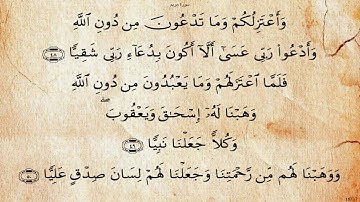 سورة مريم
وَأَعْتَزِلُكُمْ وَمَا تَدْعُونَ مِن دُونِ ٱللَّهِ
وَأَدْعُوا۟ رَبِّى عَسَىٰٓ أَلَّآ أَكُونَ بِدُعَآءِ رَبِّى شَقِيًّا ﴿٤٨﴾
فَلَمَّا ٱعْتَزَلَهُمْ وَمَا يَعْبُدُونَ مِن دُونِ ٱللَّهِ
وَهَبْنَا لَهُۥٓ إِسْحَـٰقَ وَيَعْقُوبَ ۖ
وَكُلًّا جَعَلْنَا نَبِيًّا ﴿٤٩﴾
وَوَهَبْنَا لَهُم مِّن رَّحْمَتِنَا وَجَعَلْنَا لَهُمْ لِسَانَ صِدْقٍ عَلِيًّا ﴿٥٠﴾